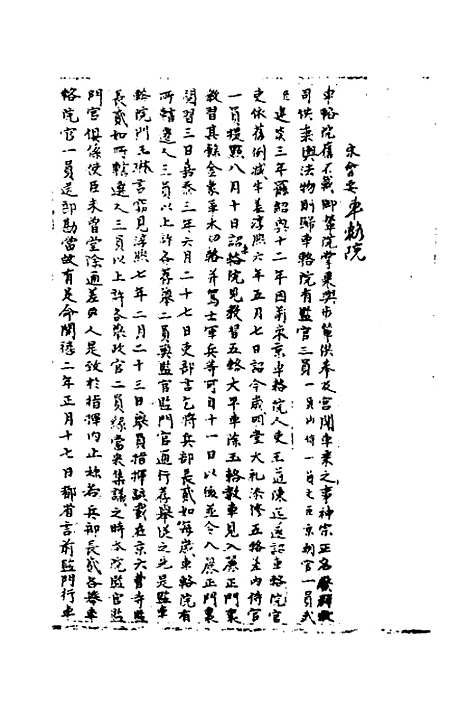 宋會要 車輅院
車輅院舊不載御輦院掌乘輿步輦供奉及宮闈車乘之事神宗正名
司供乘輿法物則歸車輅院有監官三員一員內侍一員文臣京朝官一員武
臣建炎三年罷紹興十二年因前東京車輅院人吏王道陳迄遂詔車輅院官
吏依舊例減半差淳熙六年五月七日詔今歲明堂大礼添修五輅差內侍官
一員提點八月十日詔輅院見教習五輅大平車除玉輅教車見入麗正門裏
教習其餘金象革木四輅并駕士軍兵等可自十一日以後並令入麗正門裏
閱習三日嘉泰三年六月二十七日吏部言乞將兵部長貳如每歲車輅院有
所轄選人三員以上許各薦舉二員與監官監門官通行薦舉從之先是監
輅院門王琳言竊見淳熙七年二月二十三日舉員指揮該載在京六曹寺監
長貳如所轄選人三員以上許各舉改官二員緣當來集議之時本院監官監
門官俱係使臣未曾堂除通差文人是致於指揮內止稱若兵部長貳各舉車
輅院官一員送部勘當故有是命開禧二年正月十七日都省言前監門行車